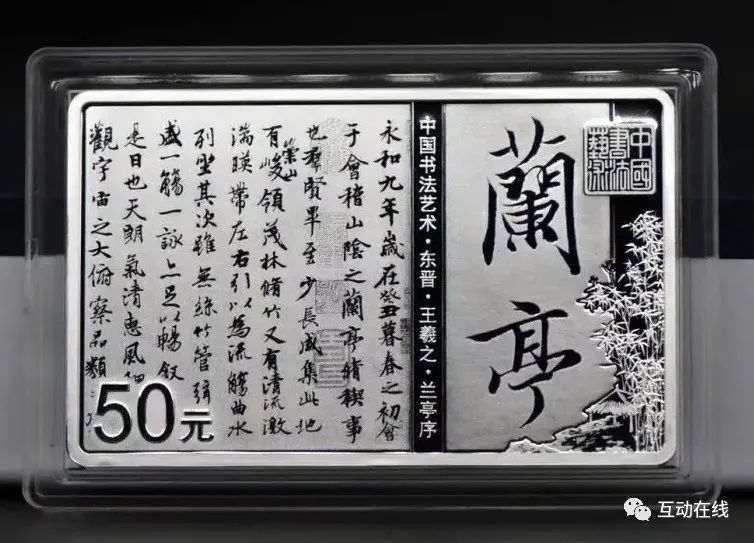 中國
書法
藝術
蘭亭
中国书法艺术·东晋·王羲之·兰亭序
永和九年歲在癸丑暮春之初會
于會稽山陰之蘭亭脩稧事
也羣賢畢至少長咸集此地
有崇山峻領茂林脩竹又有清流激
湍暎帶左右引以為流觴曲水
列坐其次雖無絲竹管弦
盛一觴一詠亦足以暢敘
是日也天朗氣清惠風
觀宇宙之大俯察品類
50元
互动在线